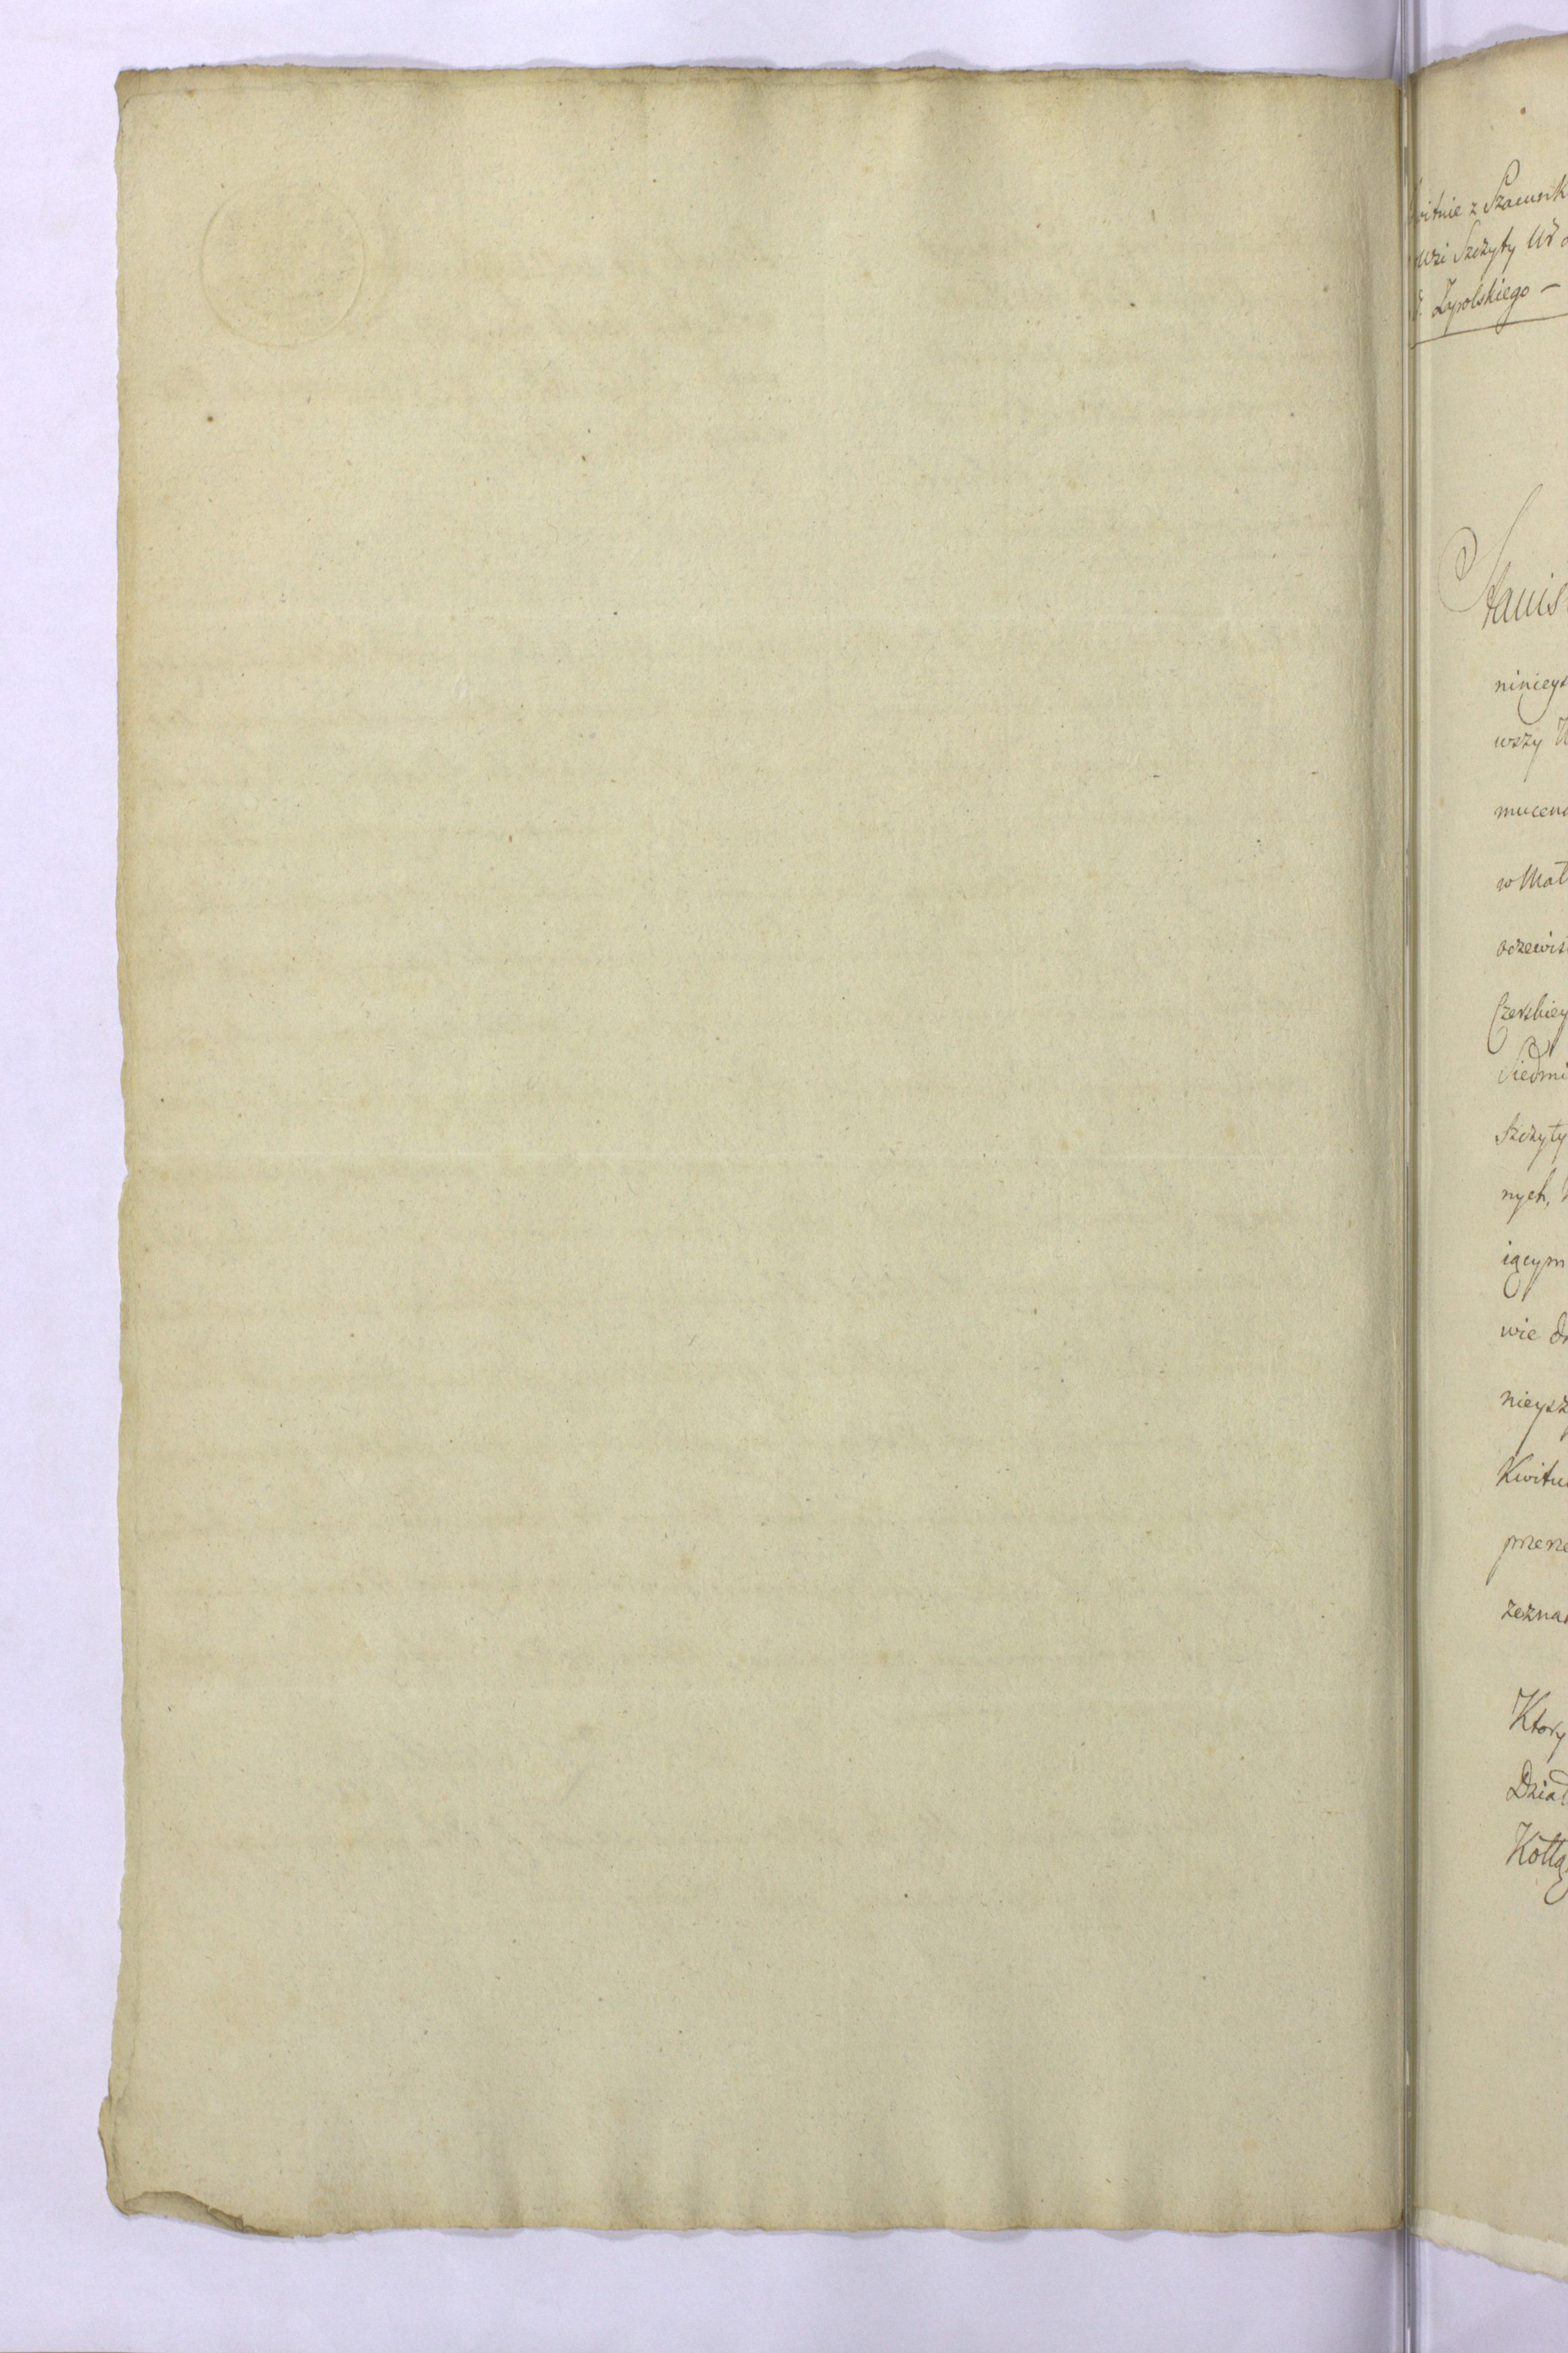 z Szacunk
Szczyty Ur
Zypolskiego —
Stanis
ninieys
wszy
mucena
w Mał
oczewis
Czerskiey
Siedmi
Szczyty
nych,
iącym
wie
nieysz
Kwitu
przerze
zezna
Ktory
Dział
Kołłą